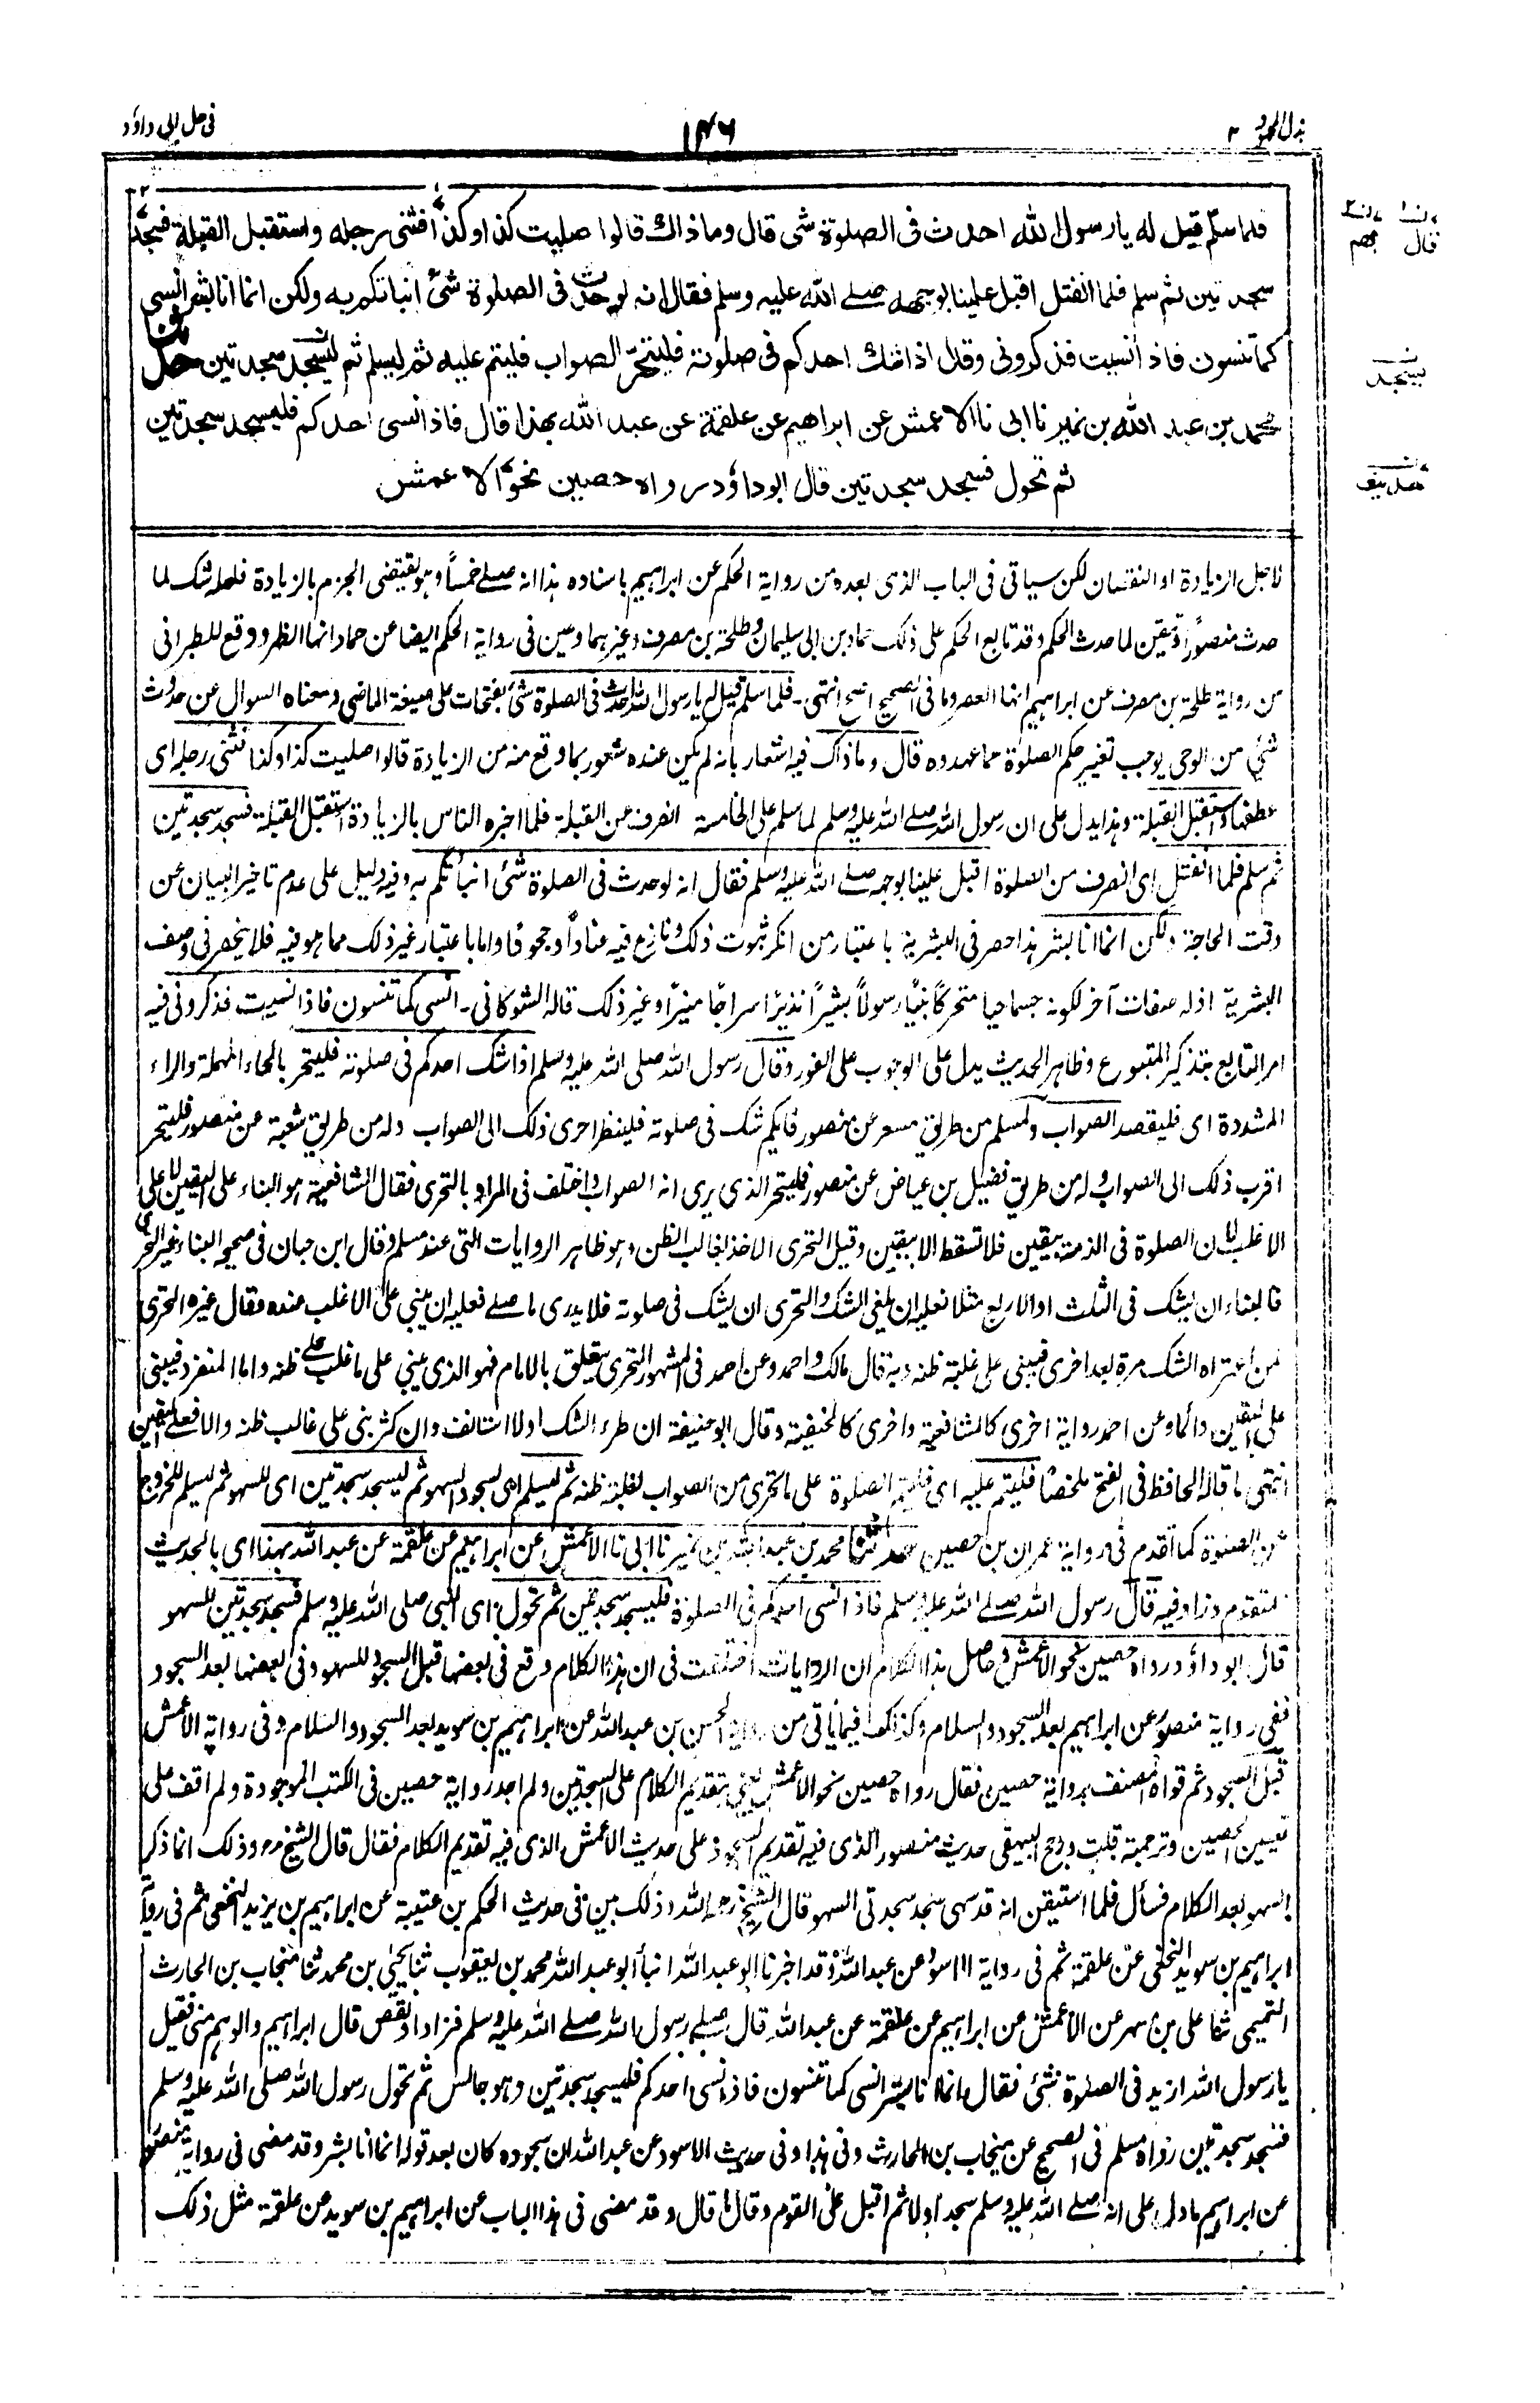 بذل المجهود ٢
١٤٦
فى حل ابى داؤد
فلما سلم قيل له يا رسول الله احدث فى الصلوة شئ قال وما ذاك قالوا صليت كذا وكذا فثنى رجله واستقبل القبلة فسجد
سجدتين ثم سلم فلما انفتل اقبل علينا بوجهه صلے الله عليه وسلم فقال انه لو حدث فى الصلوة شئ انبأتكم به ولكن انما انا بشر انسى
كما تنسون فاذا نسيت فذكرونى وقال اذا شك احدكم فى صلوته فليتحر الصواب فليتم عليه ثم ليسلم ثم ليسجد سجدتين حدثنا
محمد بن عبد الله بن نمير نا ابى نا الاعمش عن ابراهيم عن علقمة عن عبد الله بهذا قال فاذا نسى احدكم فليسجد سجدتين
ثم تحول فسجد سجدتين قال ابو داؤد رواه حصين نحو الاعمش
قال
بهم
يسجد
لاجل الزيادة او النقصان لكن سياتى فى الباب الذى بعده من رواية الحكم عن ابراهيم باسناده هذا انه صلے خمساً وهو يقتضى الجزم بالزيادة فلعله شك لما
حدث منصوراً وتيقن لما حدث الحكم وقد تابع الحكم على ذلك حماد بن ابى سليمان وطلحة بن مصرف وغيرهما وعين فى رواية الحكم ايضا عن حماد انها الظهر ووقع للطبرانى
من رواية طلحة بن مصرف عن ابراهيم انها العصر وما فى الصحيح اصح انتهى ـ فلما سلم قيل له يا رسول الله احدث فى الصلوة شئ بفتحات على صيغة الماضى ومعناه السوال عن حدوث
شئ من الوحى يوجب تغيير حكم الصلوة مما عهدوه قال وما ذاك فيه اشعار بانه لم يكن عنده شعور بما وقع منه من الزيادة قالوا صليت كذا وكذا فثنى رجله اى
عطفها واستقبل القبلة وهذا يدل على ان رسول الله صلے الله عليه وسلم لما سلم على الخامسة انصرف عن القبلة فلما اخبره الناس بالزيادة استقبل القبلة فسجد سجدتين
ثم سلم فلما انفتل اى انصرف من الصلوة اقبل علينا بوجهه صلے الله عليه وسلم فقال انه لو حدث فى الصلوة شئ انبأتكم به وفيه دليل على عدم تاخير البيان عن
وقت الحاجة ولكن انما انا بشر هذا حصر فى البشرية باعتبار من انكر ثبوت ذلك ونازع فيه عناداً وجحودا واما باعتبار غير ذلك مما هو فيه فلا ينحصر فى وصف
البشرية اذ له صفات آخر لكونه جسما حيا متحركاً نبيا رسولاً بشيراً نذيرا سراجا منيرا وغير ذلك قاله الشوكانى ـ انسى كما تنسون فاذا نسيت فذكرونى فيه
امر التابع بتذكير المتبوع وظاهر الحديث يدل على الوجوب على الفور وقال رسول الله صلى الله عليه وسلم اذا شك احدكم فى صلوته فليتحر بالحاء المهملة والراء
المشددة اى فليقصد الصواب ولمسلم من طريق مسعر عن منصور فايكم شك فى صلوته فلينظر احرى ذلك الى الصواب وله من طريق شعبة عن منصور فليتحر
اقرب ذلك الى الصواب وله من طريق فضيل بن عياض عن منصور فليتحر الذى يرى انه الصواب واختلف فى المراد بالتحرى فقال الشافعية هو البناء على اليقين لا على
الاغلب لان الصلوة فى الذمة بيقين فلا تسقط الا بيقين وقيل التحرى الاخذ بغالب الظن وهو ظاهر الروايات التى عند مسلم وقال ابن حبان فى صحيحه البناء غير التحرى
فالبناء ان يشك فى الثلث او الاربع مثلا فعليه ان يلغى الشك والتحرى ان يشك فى صلوته فلا يدرى ما صلے فعليه ان يبنى على الاغلب عنده وقال غيره التحرى
لمن اعتراه الشك مرة بعد اخرى فيبنى على غلبة ظنه وبه قال مالك واحمد وعن احمد فى المشهور التحرى يتعلق بالامام فهو الذى يبنى على ما غلب على ظنه واما المنفرد فيبنى
على اليقين دائما وعن احمد رواية اخرى كالشافعية واخرى كالحنفية وقال ابو حنيفة ان طرء الشك اولا استانف وان كثر بنى على غالب ظنه والا فعلے اليقين
انتهى ما قاله الحافظ فى الفتح ملخصا فليتم عليه اى فليتم الصلوة على ما تحرى من الصواب لغلبة ظنه ثم ليسلم اى لسجود السهو ثم ليسجد سجدتين اى للسهو ثم ليسلم للخروج
عن الصلوة كما تقدم فى رواية عمران بن حصين حدثنا محمد بن عبد الله بن نمير نا ابى نا الاعمش عن ابراهيم عن علقمة عن عبد الله بهذا اى بالحديث
المتقدم وزاد فيه قال رسول الله صلے الله عليه وسلم فاذا نسى احدكم فى الصلوة فليسجد سجدتين ثم تحول اى النبى صلى الله عليه وسلم فسجد سجدتين للسهو
قال ابو داؤد رواه حصين نحو الاعمش وحاصل هذا الكلام ان الروايات اختلفت فى ان هذا الكلام وقع فى بعضها قبل السجود للسهو وفى بعضها بعد السجود
ففى رواية منصور عن ابراهيم بعد السجود والسلام وكذلك فيما ياتى من رواية الحسن بن عبد الله عن ابراهيم بن سويد بعد السجود والسلام وفى رواية الاعمش
قبل السجود ثم قواه المصنف برواية حصين فقال رواه حصين نحو الاعمش يعنى بتقديم الكلام على السجدتين ولم اجد رواية حصين فى الكتب الموجودة ولم اقف على
تعيين الحصين وترجمته قلت ورجح البيهقى حديث منصور الذى فيه تقديم السجود على حديث الاعمش الذى فيه تقديم الكلام فقال قال الشيخ وذلك انما ذكر
السهو بعد الكلام فسأل فلما استيقن انه قد سهى سجد سجدتى السهو قال الشيخ رحمه الله وذلك بين فى حديث الحكم بن عتيبة عن ابراهيم بن يزيد النخعى ثم فى رواية
ابراهيم بن سويد النخعى عن علقمة ثم فى رواية الاسود عن عبد الله وقد اخبرنا ابو عبد الله انبأ ابو عبد الله محمد بن يعقوب ثنا يحيى بن محمد ثنا منجاب بن الحارث
التميمى ثنا على بن مسهر عن الاعمش عن ابراهيم عن علقمة عن عبد الله قال صلے رسول الله صلے الله عليه وسلم فزاد او نقص قال ابراهيم والوهم منى فقيل
يا رسول الله ازيد فى الصلوة شئ فقال انما انا بشر انسى كما تنسون فاذا نسى احدكم فليسجد سجدتين وهو جالس ثم تحول رسول الله صلى الله عليه وسلم
فسجد سجدتين رواه مسلم فى الصحيح عن منجاب بن الحارث وفى هذا وفى حديث الاسود عن عبد الله ان سجوده كان بعد قوله انما انا بشر وقد مضى فى رواية منصور
عن ابراهيم ما دل على انه صلے الله عليه وسلم سجد اولا ثم اقبل على القوم وقال ما قال وقد مضى فى هذا الباب عن ابراهيم بن سويد عن علقمة مثل ذلك